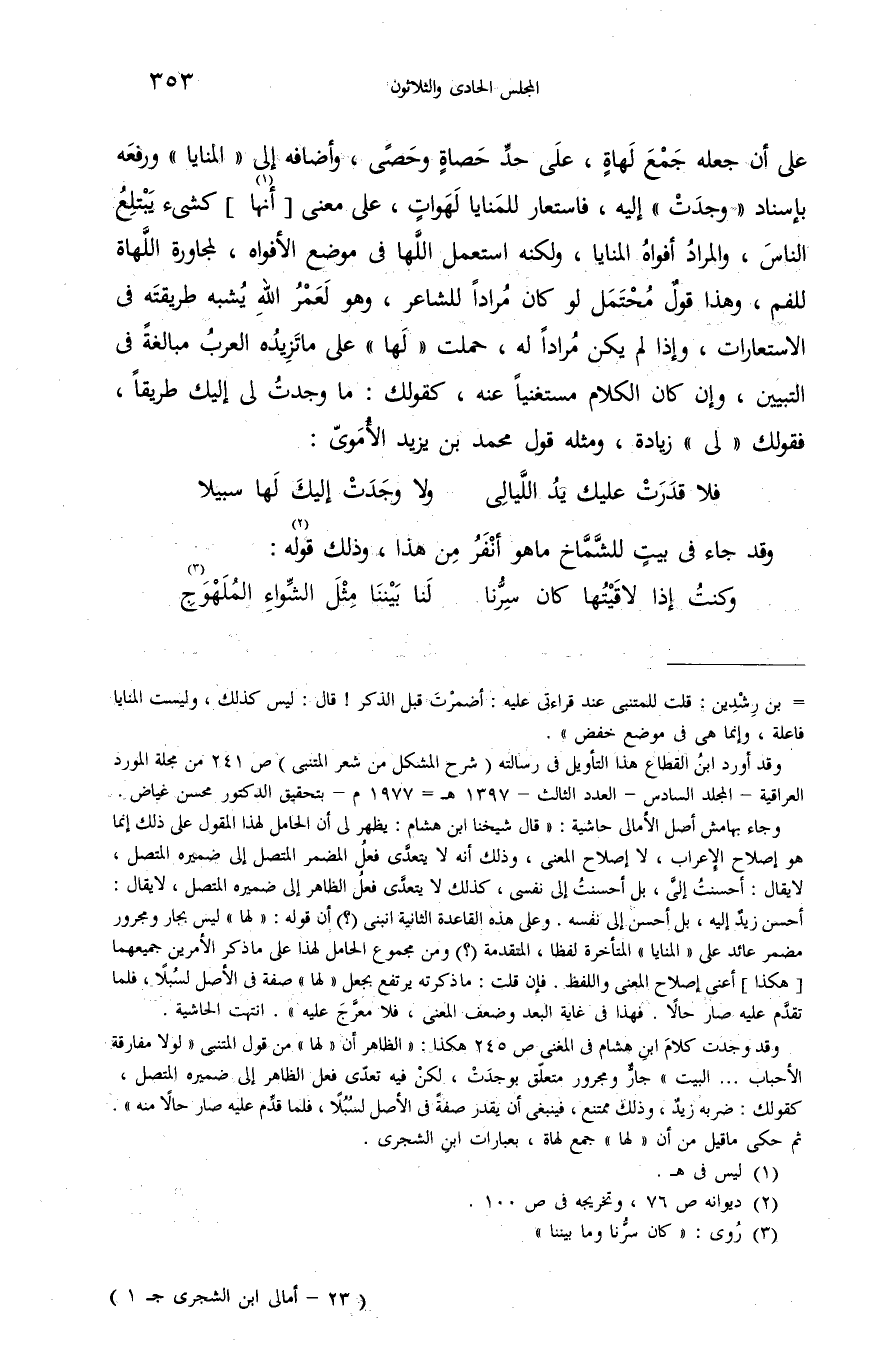 المجلس الحادى والثلاثون ٣٥٣
على أن جعله جَمْعَ لَهاةٍ ، علَى حدِّ حَصاةٍ وحَصًى ، وأضافه إلى « المنايا » ورفعَه
بإسناد « وجدَتْ » إليه ، فاستعار للمَنايا لَهَواتٍ ، على معنى [ أنها (١) ] كشىء يَبْتلِعُ
الناسَ ، والمرادُ أفواهُ المنايا ، ولكنه استعمل اللَّها فى موضع الأفواه ، لمجاورة اللَّهاة
للفم ، وهذا قولٌ مُحْتَمَل لو كان مُراداً للشاعر ، وهو لَعَمْرُ اللهِ يُشبه طريقتَه فى
الاستعارات ، وإذا لم يكن مُراداً له ، حملت « لَها » على ماتَزِيدُه العربُ مبالغةً فى
التبيين ، وإن كان الكلام مستغنياً عنه ، كقولك : ما وجدتُ لى إليك طريقاً ،
فقولك « لى » زيادة ، ومثله قول محمد بن يزيد الأُمَوىّ :
فلا قدَرَتْ عليك يَدُ اللَّيالِى ولا وجَدَتْ إليكَ لَها سبيلا
وقد جاء فى بيتٍ للشَّمَّاخ ماهو أنْفَرُ مِن هذا ، وذلك قوله (٢) :
وكنتُ إذا لاقَيْتُها كان سِرُّنا لَنا بَيْننَا مِثْلَ الشِّواءِ المُلَهْوَجِ (٣)
= بن رِشْدِين : قلت للمتنبى عند قراءتى عليه : أضمرْتَ قبل الذكر ! قال : ليس كذلك ، وليست المنايا
فاعلة ، وإنما هى فى موضع خفض » .
وقد أورد ابنُ القطاع هذا التأويل فى رسالته ( شرح المشكل من شعر المتنبى ) ص ٢٤١ من مجلة المورد
العراقية – المجلد السادس – العدد الثالث – ١٣٩٧ هـ = ١٩٧٧ م – بتحقيق الدكتور محسن غياض .
وجاء بهامش أصل الأمالى حاشية : « قال شيخنا ابن هشام : يظهر لى أن الحامل لهذا المقول على ذلك إنما
هو إصلاح الإعراب ، لا إصلاح المعنى ، وذلك أنه لا يتعدَّى فعلُ المضمر المتصل إلى ضميره المتصل ،
لايقال : أحسنتُ إلىَّ ، بل أحسنتُ إلى نفسى ، كذلك لا يتعدَّى فعلُ الظاهر إلى ضميره المتصل ، لايقال :
أحسن زيدٌ إليه ، بل أحسن إلى نفسه . وعلى هذه القاعدة الثانية انبنى (؟) أن قوله : « لها » ليس بجار ومجرور
مضمر عائد على « المنايا » المتأخرة لفظا ، المتقدمة (؟) ومن مجموع الحامل لهذا على ماذكر الأمرين جميعهما
[ هكذا ] أعنى إصلاح المعنى واللفظ . فإن قلت : ماذكرته يرتفع بجعل « لها » صفة فى الأصل لسُبلًا ، فلما
تقدَّم عليه صار حالًا . فهذا فى غاية البعد وضعف المعنى ، فلا معرَّجَ عليه » . انتهت الحاشية .
وقد وجدت كلامَ ابنِ هشام فى المغنى ص ٢٤٥ هكذا : « الظاهر أن « لها » من قول المتنبى « لولا مفارقة
الأحباب ... البيت » جارٌّ ومجرور متعلّق بوجدَتْ ، لكنْ فيه تعدّى فعل الظاهر إلى ضميره المتصل ،
كقولك : ضربه زيدٌ ، وذلك ممتنع ، فينبغى أن يقدر صفةً فى الأصل لسُبُلًا ، فلما قدِّم عليه صار حالًا منه » .
ثم حكى ماقيل من أن « لها » جمع لهاة ، بعبارات ابنِ الشجرى .
(١) ليس فى هـ .
(٢) ديوانه ص ٧٦ ، وتخريجه فى ص ١٠٠ .
(٣) رُوى : « كان سرُّنا وما بيننا »
( ٢٣ – أمالى ابن الشجرى جـ ١ )